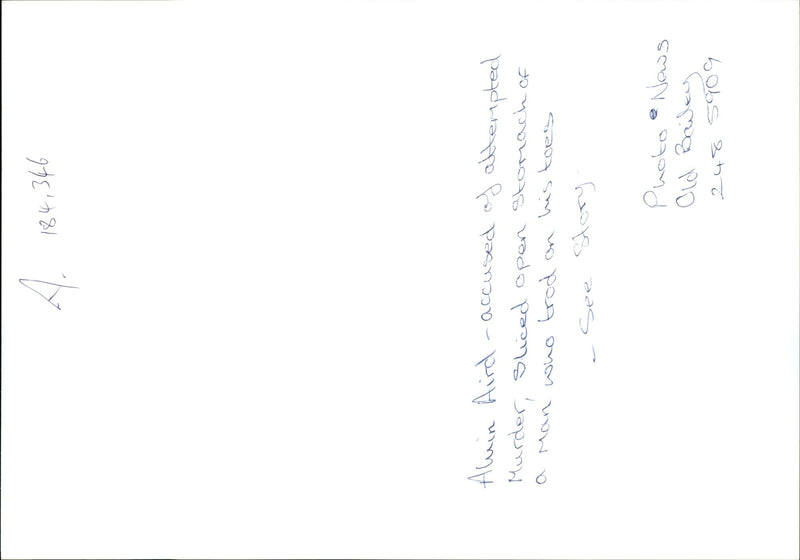 A. 184,346
Alwin Aird - accused of attempted
Murder, Sliced open stomach of
a man who trod on his toes
- See Story.
Photo News
Old Bailey
248 5909